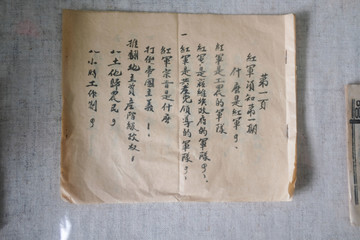 第一頁
紅軍須知第一期
什麼是紅軍?
紅軍是工農的軍隊
紅軍是蘇維埃政府的軍隊
一 紅軍是共產党領導的軍隊
紅軍宗旨是什麼
打倒帝國主義
推翻地主資產階級政权
土地歸農民
八小時工作制